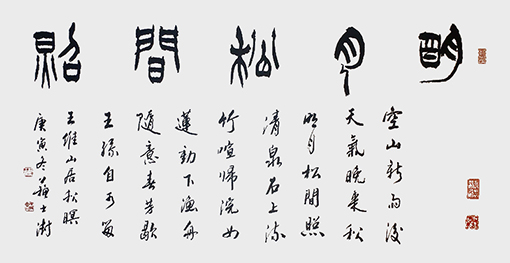 明月松間照
空山新雨後
天氣晚來秋
明月松間照
清泉石上流
竹喧歸浣女
蓮動下漁舟
隨意春芳歇
王孫自可留
王維山居秋暝
庚寅冬蘇士澍